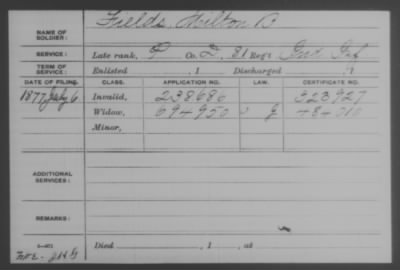 NAME OF SOLDIER: Fields, Milton B
SERVICE: Late rank, P Co. I, 31 Reg't Ind Inf
TERM OF SERVICE: Enlisted , 1 Discharged , 1
DATE OF FILING. CLASS. APPLICATION NO. LAW. CERTIFICATE NO.
1877 July 6 Invalid, 238686 323927
Widow, 694950 484010
Minor,
ADDITIONAL SERVICES:
REMARKS:
Died , 1 , at